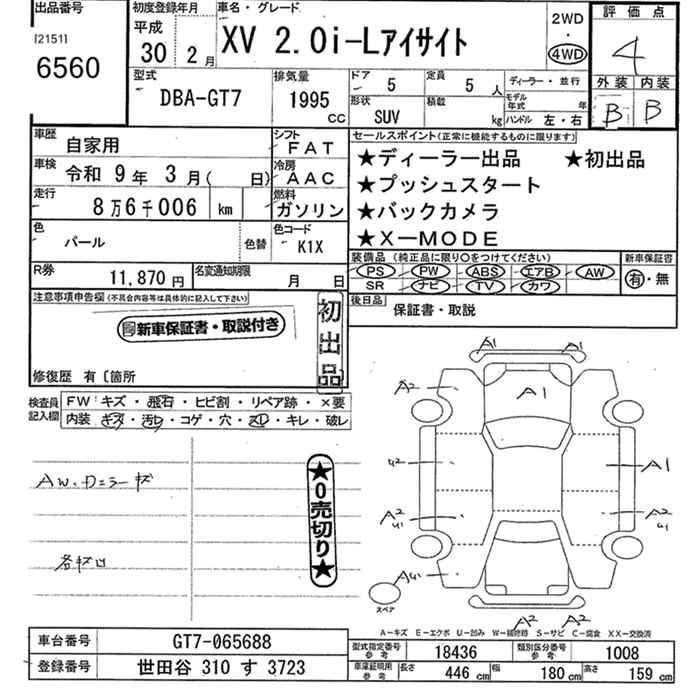 出品番号 初度登録年月 車名・グレード 2WD ・ 4WD 評価点
[2151] 平成 30 年 2 月 XV 2.0i-Lアイサイト 4
6560 外装 内装
型式 排気量 ドア 5 定員 5 人 ディーラー・並行
DBA-GT7 1995 cc 形状 SUV 積載 kg モデル年式 年 B B
ハンドル 左・右
車歴 自家用 シフト FAT セールスポイント(正常に機能するものに限ります)
車検 令和 9 年 3 月( 日) 冷房 AAC ★ディーラー出品 ★初出品
走行 8万6千006 km 燃料 ガソリン ★プッシュスタート
★バックカメラ
色 パール 色替 色コード K1X ★X-MODE
装備品(純正品に限り○をつけてください) 新車保証書
PS PW ABS エアB AW 有・無
R券 11,870 円 名変通知期限 月 日 SR ナビ TV カワ
注意事項申告欄(不具合内容等は具体的に記入して下さい) 初出品 後日品 保証書・取説
新車保証書・取説付き
修復歴 有〔箇所
検査員記入欄 FW:キズ・飛石・ヒビ割・リペア跡・×要
内装:キズ・汚レ・コゲ・穴・スレ・キレ・破レ
A1 A1
A2 A1
U2 A1
AW.ドミラーキズ ★0売切り★
A2 U1 A2 U1
各キズ凹 AU1
スペア
A2 A2
A-キズ E-エクボ U-凹み W-補修跡 S-サビ C-腐食 XX-交換済
車台番号 GT7-065688 型式指定番号 参考 18436 類別区分番号 参考 1008
登録番号 世田谷 310 す 3723 車庫証明用 参考 長さ 446 cm 幅 180 cm 高さ 159 cm